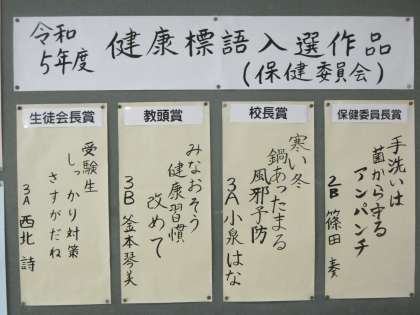 令和
5年度
健康標語入選作品
(保健委員会)
保健委員長賞
手洗いは
菌から守る
アンパンチ
2B 篠田 奏
校長賞
寒い冬
鍋あったまる
風邪予防
3A 小泉はな
教頭賞
みなおそう
健康習慣
改めて
3B 釜本琴美
生徒会長賞
受験生
しっかり対策
さすがだね
3A 西北 詩